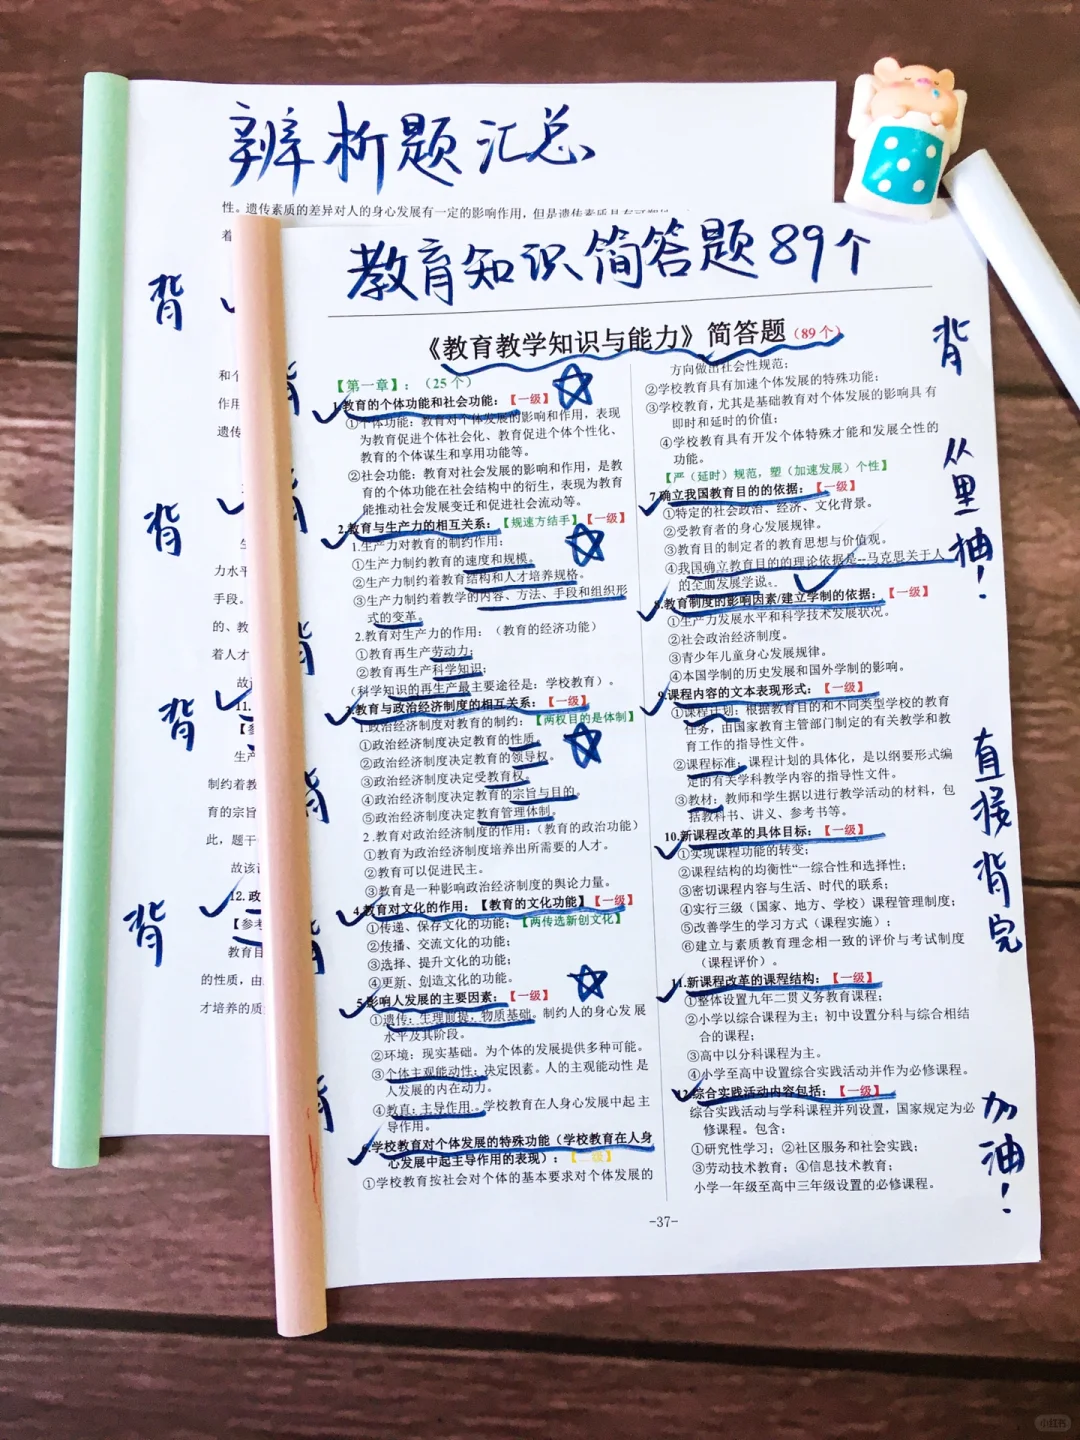 辨析题汇总
性。遗传素质的差异对人的身心发展有一定的影响作用，但是遗传素质具有可塑
着
背
和个
作用
遗传
背
力水平
手段。
的、教
着人才
故
11.
背
生产
制约着教
育的宗旨
此，题干
故该
12.政
【参考
背
教育目
的性质，由
才培养的质
教育知识简答题89个
《教育教学知识与能力》简答题（89个）
【第一章】：（25个）
1.教育的个体功能和社会功能：【一级】
①个体功能：教育对个体发展的影响和作用，表现
为教育促进个体社会化、教育促进个体个性化、
教育的个体谋生和享用功能等。
②社会功能：教育对社会发展的影响和作用，是教
育的个体功能在社会结构中的衍生，表现为教育
能推动社会发展变迁和促进社会流动等。
2.教育与生产力的相互关系：【规速方结手】【一级】
1.生产力对教育的制约作用：
①生产力制约教育的速度和规模。
②生产力制约着教育结构和人才培养规格。
③生产力制约着教学的内容、方法、手段和组织形
式的变革。
2.教育对生产力的作用：（教育的经济功能）
①教育再生产劳动力；
②教育再生产科学知识；
（科学知识的再生产最主要途径是：学校教育）。
3.教育与政治经济制度的相互关系：【一级】
1.政治经济制度对教育的制约：【两权目的是体制】
①政治经济制度决定教育的性质。
②政治经济制度决定教育的领导权。
③政治经济制度决定受教育权。
④政治经济制度决定教育的宗旨与目的。
⑤政治经济制度决定教育管理体制。
2.教育对政治经济制度的作用：（教育的政治功能）
①教育为政治经济制度培养出所需要的人才。
②教育可以促进民主。
③教育是一种影响政治经济制度的舆论力量。
4.教育对文化的作用：【教育的文化功能】【一级】
①传递、保存文化的功能；【两传选新创文化】
②传播、交流文化的功能；
③选择、提升文化的功能；
④更新、创造文化的功能。
5.影响人发展的主要因素：【一级】
①遗传：生理前提，物质基础。制约人的身心发展
水平及其阶段。
②环境：现实基础。为个体的发展提供多种可能。
③个体主观能动性：决定因素。人的主观能动性是
人发展的内在动力。
④教直：主导作用.。学校教育在人身心发展中起主
导作用。
6.学校教育对个体发展的特殊功能（学校教育在人身
心发展中起主导作用的表现）：【二级】
①学校教育按社会对个体的基本要求对个体发展的
方向做出社会性规范；
②学校教育具有加速个体发展的特殊功能；
③学校教育，尤其是基础教育对个体发展的影响具有
即时和延时的价值；
④学校教育具有开发个体特殊才能和发展个性的
功能。
【严（延时）规范，塑（加速发展）个性】
7.确立我国教育目的的依据：【一级】
①特定的社会政治、经济、文化背景。
②受教育者的身心发展规律。
③教育目的制定者的教育思想与价值观。
④我国确立教育目的的理论依据是--马克思关于人
的全面发展学说。
8.教育制度的影响因素/建立学制的依据：【一级】
①生产力发展水平和科学技术发展状况。
②社会政治经济制度。
③青少年儿童身心发展规律。
④本国学制的历史发展和国外学制的影响。
9.课程内容的文本表现形式：【一级】
①课程计划：根据教育目的和不同类型学校的教育
任务，由国家教育主管部门制定的有关教学和教
育工作的指导性文件。
②课程标准：课程计划的具体化，是以纲要形式编
定的有关学科教学内容的指导性文件。
③教材：教师和学生据以进行教学活动的材料，包
括教科书、讲义、参考书等。
10.新课程改革的具体目标：【一级】
①实现课程功能的转变；
②课程结构的均衡性“一综合性和选择性；
③密切课程内容与生活、时代的联系；
④实行三级（国家、地方、学校）课程管理制度；
⑤改善学生的学习方式（课程实施）；
⑥建立与素质教育理念相一致的评价与考试制度
（课程评价）。
11.新课程改革的课程结构：【一级】
①整体设置九年二贯义务教育课程；
②小学以综合课程为主；初中设置分科与综合相结
合的课程；
③高中以分科课程为主。
④小学至高中设置综合实践活动并作为必修课程。
12.综合实践活动内容包括：【一级】
综合实践活动与学科课程并列设置，国家规定为必
修课程。包含：
①研究性学习；②社区服务和社会实践；
③劳动技术教育；④信息技术教育；
小学一年级至高中三年级设置的必修课程。
-37-
背
从里抽！
直接背完
加油！
小红书